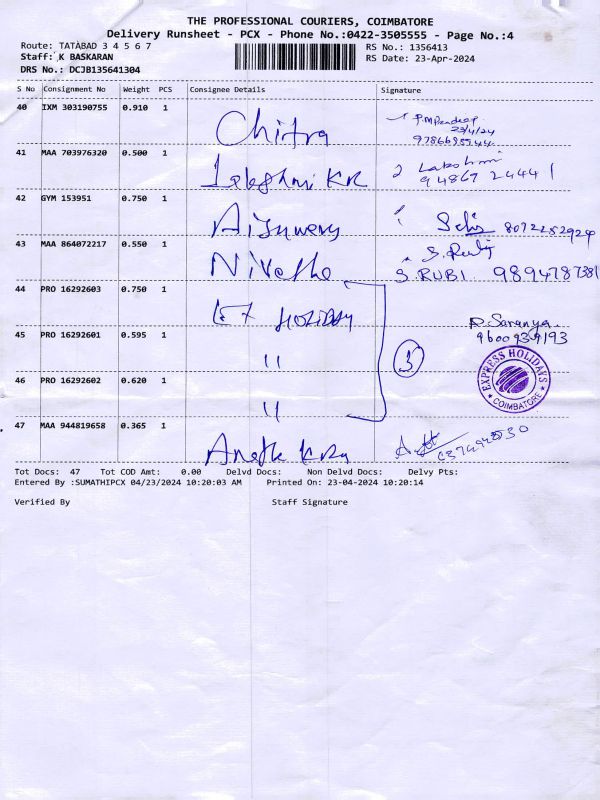 THE PROFESSIONAL COURIERS, COIMBATORE
Delivery Runsheet - PCX - Phone No.:0422-3505555 - Page No.:4
Route: TATABAD 3 4 5 6 7
RS No.: 1356413
Staff: K BASKARAN
RS Date: 23-Apr-2024
DRS No.: DCJB135641304
S No Consignment No Weight PCS Consignee Details Signature
40 IXM 303190755 0.910 1
Chitra
23/4/24
41 MAA 703976320 0.500 1
Lakshmi
94867 24441
42 GYM 153951 0.750 1
8072252924
43 MAA 864072217 0.550 1
S. Rubi
S. RUBI 9894787381
44 PRO 16292603 0.750 1
HOLIDAY
R. Saranya
9600939193
45 PRO 16292601 0.595 1
"
3
EXPRESS HOLIDAYS
COIMBATORE
46 PRO 16292602 0.620 1
"
47 MAA 944819658 0.365 1
Tot Docs: 47 Tot COD Amt: 0.00 Delvd Docs: Non Delvd Docs: Delvy Pts:
Entered By :SUMATHIPCX 04/23/2024 10:20:03 AM Printed On: 23-04-2024 10:20:14
Verified By Staff Signature